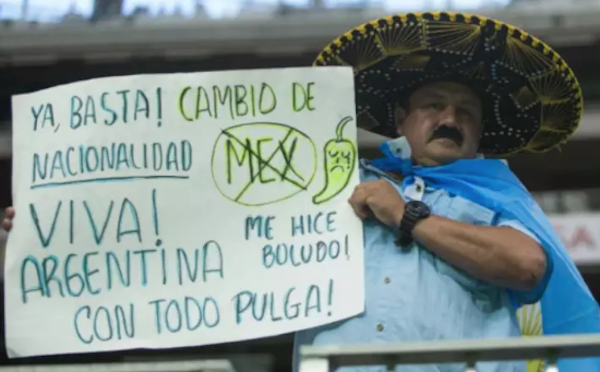 YA, BASTA! CAMBIO DE
NACIONALIDAD
MEX
VIVA!
ME HICE
BOLUDO!
ARGENTINA
CON TODO PULGA!